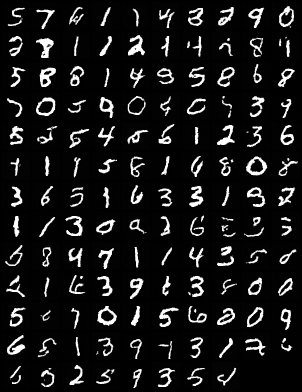 5 7 6 1 1 4 3 2 9 0
2 8 1 1 2 1 4 8 4
5 8 8 1 4 9 5 8 6 8
7 0 5 9 0 4 0 3 9
5 5 4 5 6 1 2 3 6
1 1 9 5 8 1 6 8 0 8
3 6 5 1 6 3 3 1 9 2
1 1 3 0 2 6 3
5 8 4 7 1 1 4 3 5
1 3 9 3 8 0 0
5 7 0 1 5 6 0 9
6 5 1 3 9 3 1 7
2 5 9 3 5